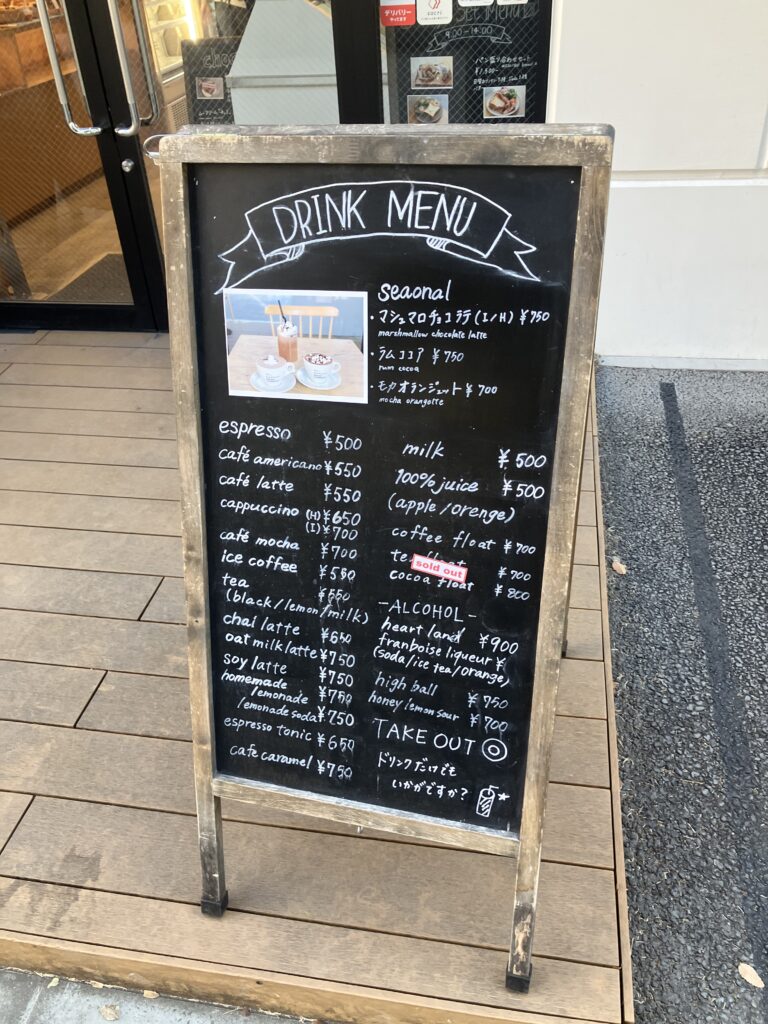 デリバリー
やってます
Set Menu
9:00-14:00
DRINK MENU
seaonal
・マシュマロチョコラテ(I/H) ¥750
marshmallow chocolate latte
・ラムココア ¥750
rum cocoa
・モカオランジェット ¥700
mocha orangette
espresso ¥500
café americano ¥550
café latte ¥550
cappuccino (H) ¥650
(I) ¥700
café mocha ¥700
ice coffee ¥550
tea ¥550
(black/lemon/milk)
chai latte ¥650
oat milk latte ¥750
soy latte ¥750
homemade
lemonade ¥750
lemonade soda ¥750
espresso tonic ¥650
cafe caramel ¥750
milk ¥500
100% juice ¥500
(apple/orenge)
coffee float ¥700
tea float ¥700
sold out
cocoa float ¥800
-ALCOHOL-
heart land ¥900
franboise liqueur ¥
(soda/ice tea/orange)
high ball ¥750
honey lemon sour ¥700
TAKE OUT ◎
ドリンクだけでも
いかがですか?